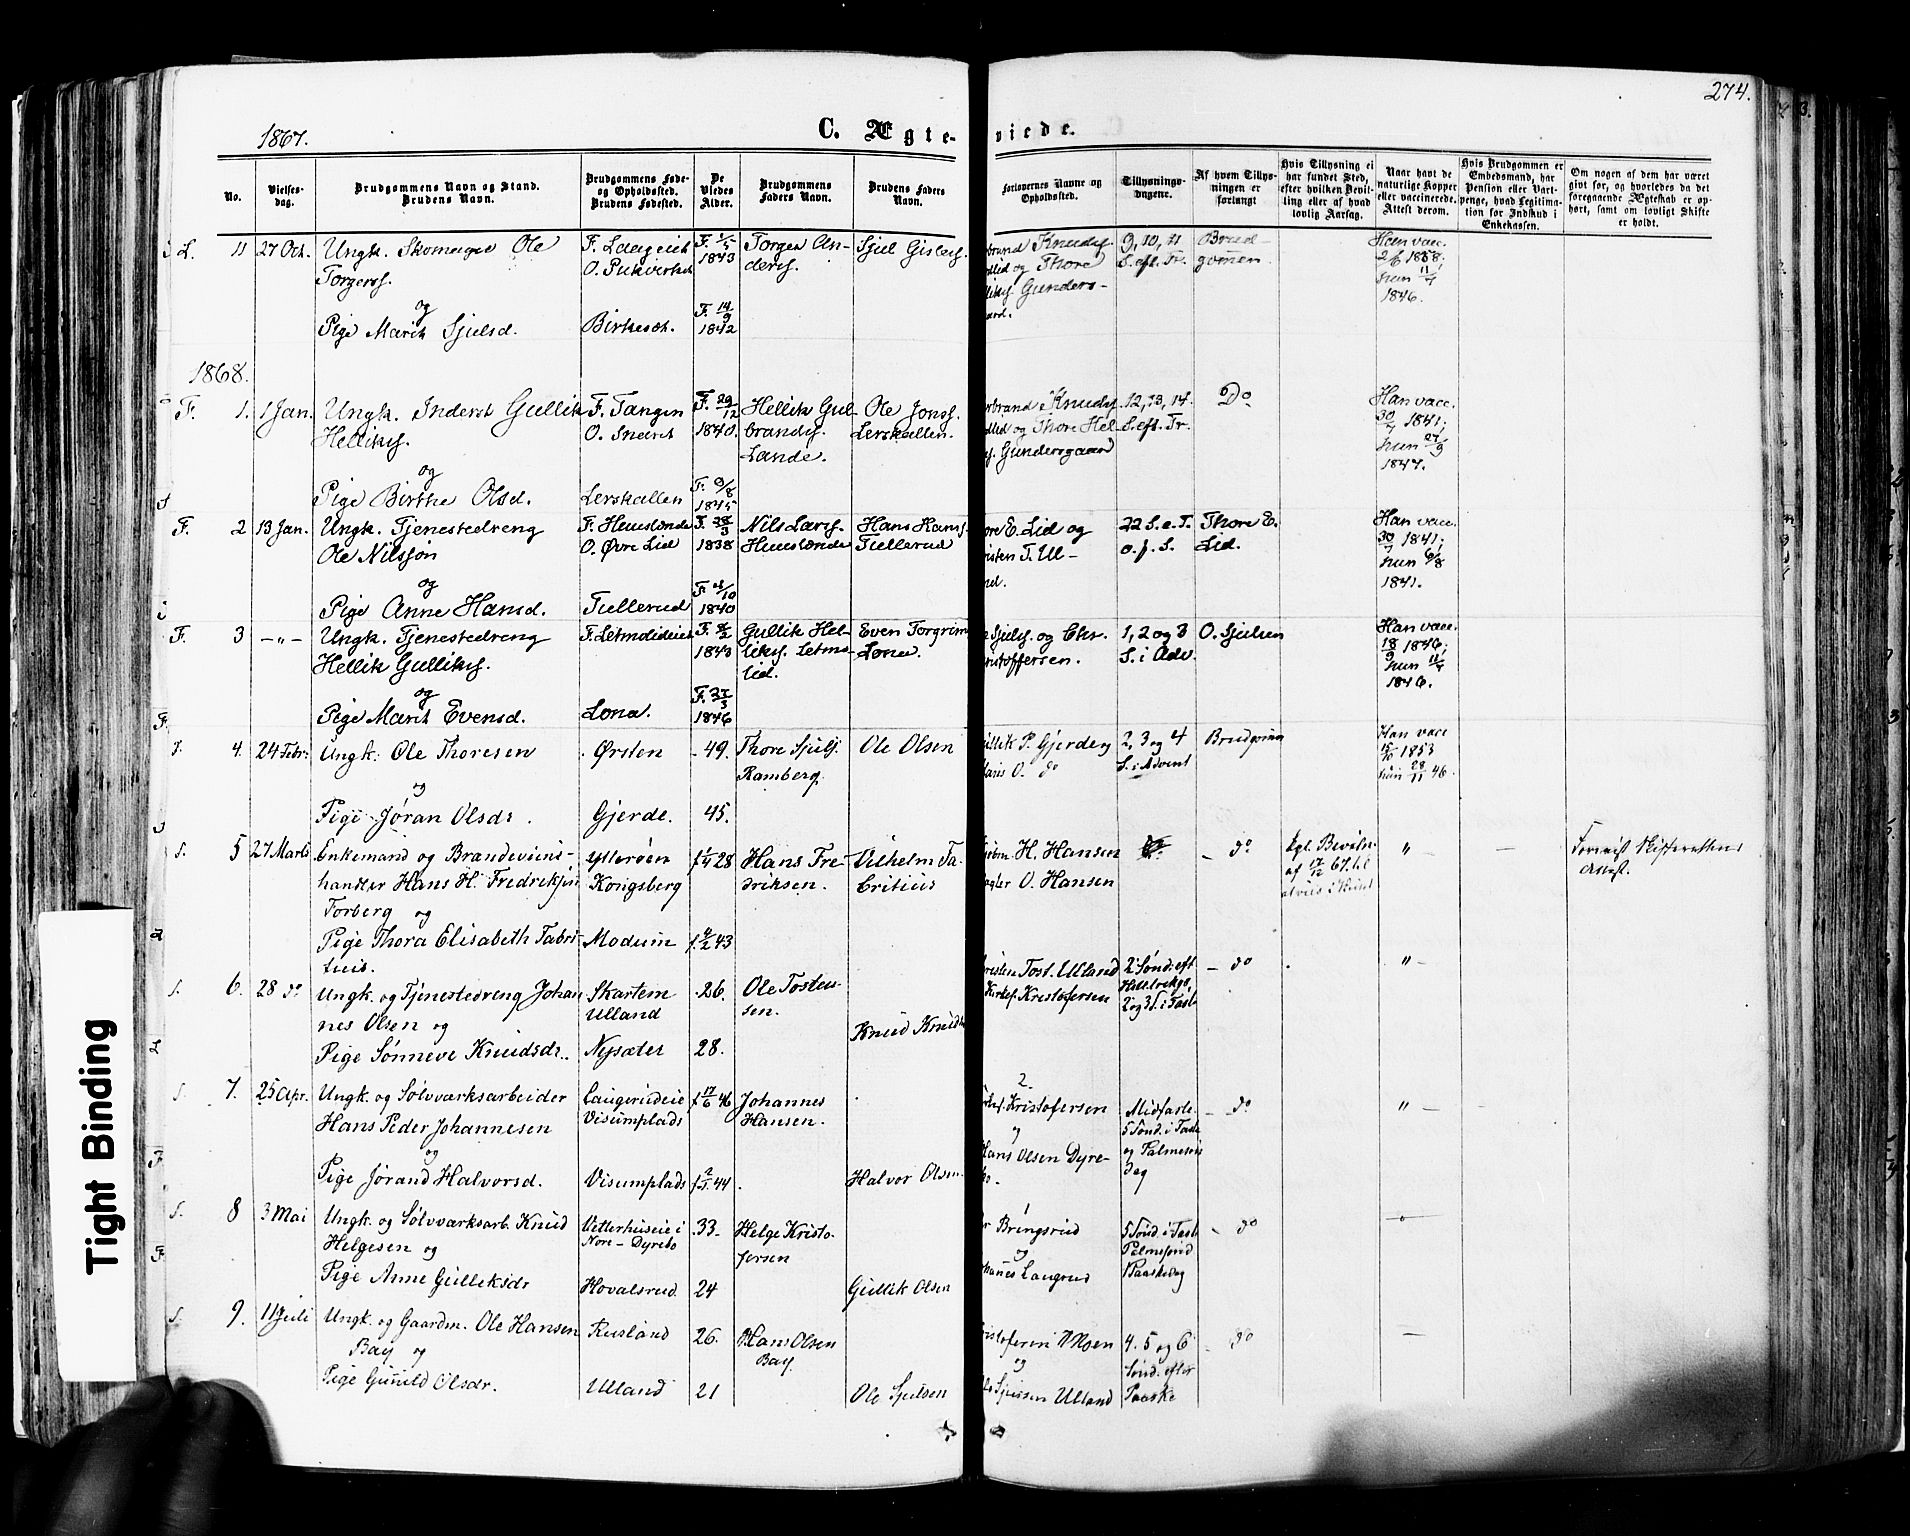 274.
1867.
C. Ægte-
viede.
No.
Vielses-
dag.
Brudgommens Navn og Stand.
Brudens Navn.
Brudgommens Føde-
og Opholdssted.
Brudens Fødested.
De
Viedes
Alder.
Brudgommens
Faders Navn.
Brudens Faders
Navn.
Forlovernes Navne og
Opholdssted.
Tillysnings-
dagene.
Af hvem Tillys-
ningen er
forlangt
Hvis Tillysning ei
har fundet Sted,
efter hvilken Bevil-
ling eller af hvad
lovlig Aarsag.
Naar havt de
naturlige Kopper
eller vaccinerede.
Attest derom.
Hvis Brudgommen er
Embedsmand, har
Pension eller Vart-
penge, hvad Legitima-
tion for Indskud i
Enkekassen.
Om nogen af dem har været
givt før, og hvorledes da det
foregaaende Ægteskab er op-
hørt, samt om lovligt Skifte
er holdt.
L. 11 27 Oct. Ungk. Skomager Ole
Torgerss.
og
Pige Marit Sjulsd.
Birkeset.
F. 1/5
1843
F. 14/9
1842
Torger An-
derss.
Sjul Gisless.
brand Knuds.
lid og Thore
Gunders-
aard.
9, 10, 11
S. eft. Tr.
Brud-
gomen
Han vacc.
1858;
hun 11/7
1846.
1868.
F. 1. 1 Jan. Ungk. Inderst Gullik
Helliks.
og
Pige Birthe Olsd.
F. Tangen
O. Snerit
Lerskallen
F. 29/12
1840.
F. 9/8
1845
Hellik Gul-
brands.
Lande.
Ole Jonss.
Lerskallen.
brand Knuds.
lid og Thore Hel-
s. Gundersgaard
12, 13, 14.
S. eft. Tr.
Do
Han vacc.
30/7 1841;
hun 27/9
1847.
F. 2 13 Jan. Ungk. Tjenestedreng
Ole Nilsson
og
Pige Anne Hansd.
O. Øvre Lid
Tullerud
F. 28/3
1838
1840
Nils Larss.
Hans Hanss.
Tullerud
ore E. Lid og
risten T. Ul-
nd.
22 S. e. T.
o. f. S.
Thore E.
Lid.
Han vacc.
30/7 1841;
hun 6/8
1841.
F. 3 —"— Ungk. Tjenestedreng
Hellik Gulliks.
og
Pige Marit Evensd.
F. Letmolideiet
Lona.
1843
F. 27/3
1846
Gullik Hel-
liks. Letmo-
lid.
Even Torgrim
Lona.
Sjuls. og Chr.
ristoffersen.
1, 2 og 3
S. i Adv.
O. Sjulsen
Han vacc.
18/9 1846;
hun 11/7
1846.
4. 24 Febr. Ungk. Ole Thoresen
og
Pige Jøran Olsdr.
Ørsten
Gjerde.
49.
45.
Thore Sjuls.
Ramberg.
Ole Olsen
Gullik P. Gjerde og
O. do
2, 3 og 4
S. i Advent
Brudgom
Han vacc
1853
hun 28/11 46.
5 27 Marts Enkemand og Brændeviins-
handler Hans H. Fredriksen
Torberg og
Pige Thora Elisabeth Fabri-
tius.
Ytterøen
Kongsberg
Modum
f. 1/4 28
f. 4/2 43
Hans Fre-
driksen.
Vilhelm Fa-
britius
H. Hansen
O. Hansen
— do
Kgl. Beviln.
af 17/12 67 til
"
—
6. 28 do Ungk. og Tjenestedreng Johan
nes Olsen og
Pige Sønneve Knudsdr.
Skartem
Ulland
Nysæter
26.
28.
Ole Tosten-
sen.
Knud Knuds
risten Tost. Ulland
Kristofersen
2 Sønd. eft
2 og 3 S. i Fast
— do
" —
7. 25 Apr. Ungk. og Sølvværksarbeider
Hans Peder Johannesen
og
Pige Jørand Halvorsd.
Laugerudeie
Visumplads
Visumplads
f. 17/6 46
44
Johannes
Hansen.
Halvor Olsen
2.
Kristofersen
Hans Olsen Dyre-
bo.
Midfaste
5 Sønd. i Faste
og Palmesøn
dag
— do
" —
8 3 Mai Ungk. og Sølvværksarb. Knud
Helgesen og
Pige Anne Gulliksdr
Vetterhuseie i
Nore - Dyrebo
Hovalsrud
33
24
Helge Kristo-
fersen
Gullik Olsen
Bringsrud
og
hanes Laugrud
5 Sønd. i Fast
Palmesønd
1 Paaskedag
— do
9. 11 Juli Ungk. og Gaardm. Ole Hansen
Bay og
Pige Gunild Olsdr.
Rusland
Ulland
26.
21
Hans Olsen
Bay.
Ole Sjulsen
Moen
og
Sjursen Ulland
4. 5 og 6
Sønd. efter
Paaske
do
—
Tight Binding